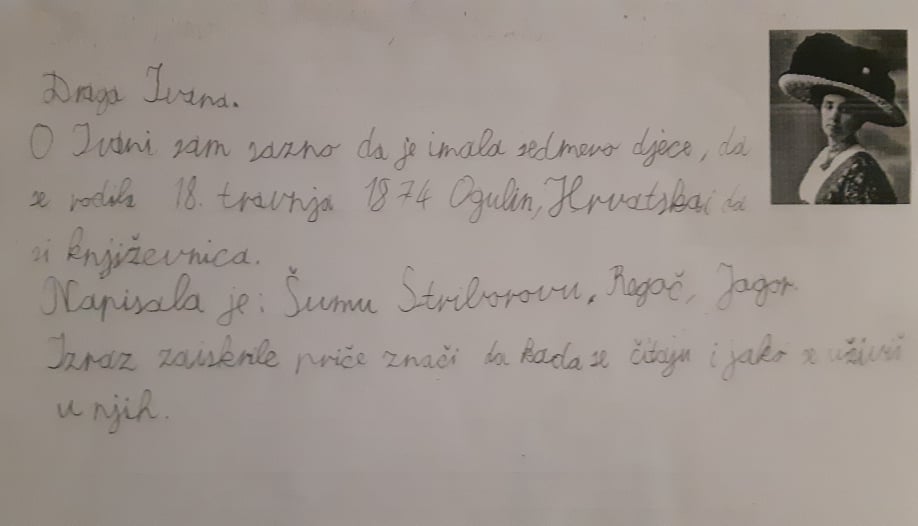 Draga Ivana.
O Ivani sam sazno da je imala sedmero djece, da
se rodila 18. travnja 1874 Ogulin, Hrvatska i da
si književnica.
Napisala je: Šumu Striborovu, Regoč, Jagor.
Izraz zaiskrile priče znači da kada se čitaju i jako se uživiš
u njih.